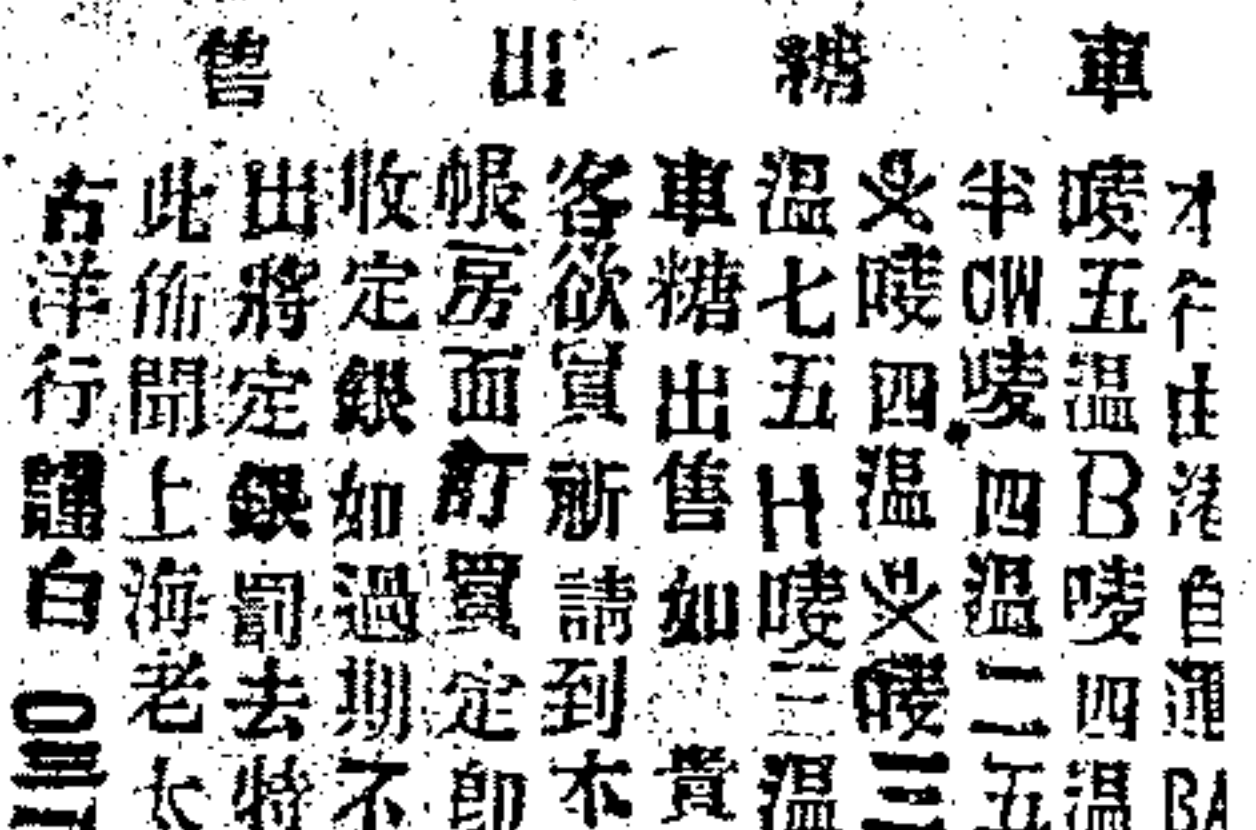 車糖出售
本行由港自運BA
嘜五溫B嘜四溫
半CW嘜四溫二五
嘜四溫嘜三
溫七五H嘜三溫
車糖出售如 貴
客欲買祈請到本
帳房面訂買定即
收定銀如過期不
出將定銀罰去特
此佈聞上海老太
古洋行謹白